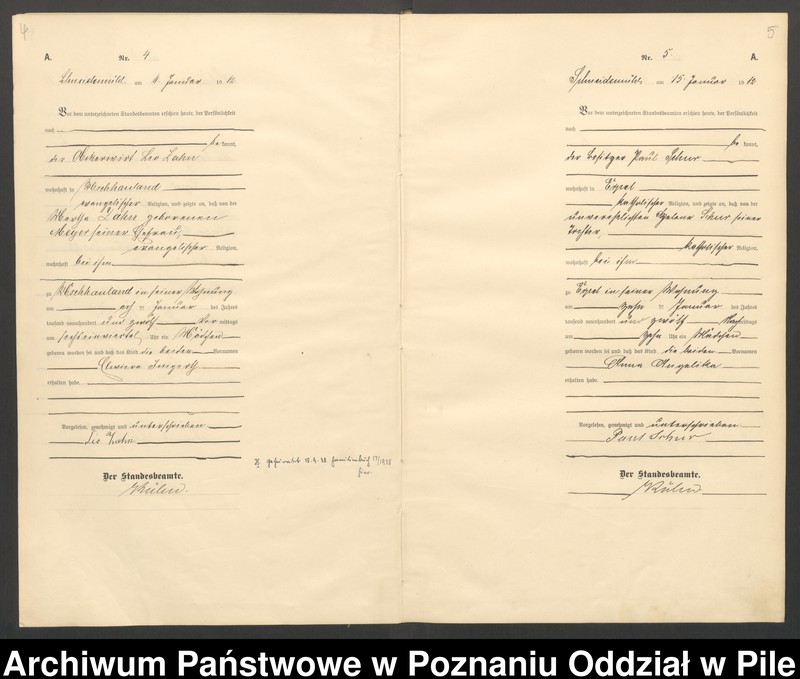 4
A.
Nr. 4
Schneidemühl am Januar 1912
Vor dem unterzeichneten Standesbeamten erschien heute, der Persönlichkeit
nach
be kannt,
der Ackerwirt Leo Zahn
wohnhaft in
evangelischer Religion, und zeigte an, daß von der
Zahn geborenen
Meyer seiner Ehefrau,
evangelischer Religion,
wohnhaft bei ihm
zu in seiner Wohnung
am Januar des Jahres
tausend neunhundert und zwölf Vor mittags
um Uhr ein Mädchen
geboren worden sei und daß das Kind die beiden Vornamen
erhalten habe.
Vorgelesen, genehmigt und unterschrieben
Leo Zahn
Der Standesbeamte.
geheiratet
hier.
5
Nr. 5
A.
Schneidemühl am 15 Januar 1912
Vor dem unterzeichneten Standesbeamten erschien heute, der Persönlichkeit
nach
be kannt,
der Besitzer Paul Schur
wohnhaft in
katholischer Religion, und zeigte an, daß von der
unverehelichten Helene Schur seiner
Tochter,
katholischer Religion,
wohnhaft bei ihm
zu in seiner Wohnung
am zehn ten Januar des Jahres
tausend neunhundert und zwölf Nach mittags
um zehn Uhr ein Mädchen
geboren worden sei und daß das Kind die beiden Vornamen
Anna Angelika
erhalten habe.
Vorgelesen, genehmigt und unterschrieben
Paul Schur
Der Standesbeamte.
Archiwum Państwowe w Poznaniu Oddział w Pile